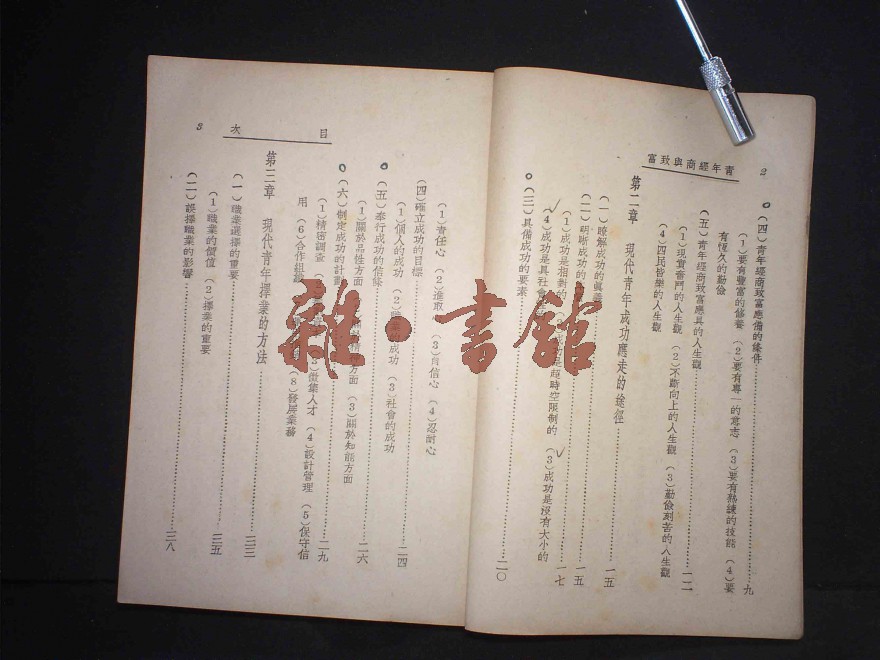 2
青年經商與致富
(四)青年經商致富應備的條件……九
(1)要有豐富的修養 (2)要有專一的意志 (3)要有熟練的技能 (4)要
有恆久的勤儉
(五)青年經商致富應具的人生觀……一二
(1)現實奮鬥的人生觀 (2)不斷向上的人生觀 (3)勤儉刻苦的人生觀
(4)四民皆樂的人生觀
第二章 現代青年成功應走的途徑……一五
(一)瞭解成功的眞義……一五
(二)明晰成功的……一七
(1)成功是相對的 成功是超時空限制的 (3)成功是沒有大小的
(4)成功是具社會
(三)具備成功的要素……二〇
目次
3
(1)責任心 (2)進取 (3)自信心 (4)忍耐心
(四)確立成功的目標……二四
(1)個人的成功 (2)職業的成功 (3)社會的成功
(五)奉行成功的信條……二六
(1)關於品性方面 方面 (3)關於知能方面
(六)制定成功的計劃……二九
(1)精密調查 (3)徵集人才 (4)設計管理 (5)保守信
用 (6)合作組織 (8)發展業務
第三章 現代青年擇業的方法……三三
(一)職業選擇的重要……三五
(1)職業的價值 (2)擇業的重要
(二)誤擇職業的影響……三八
雜·書館